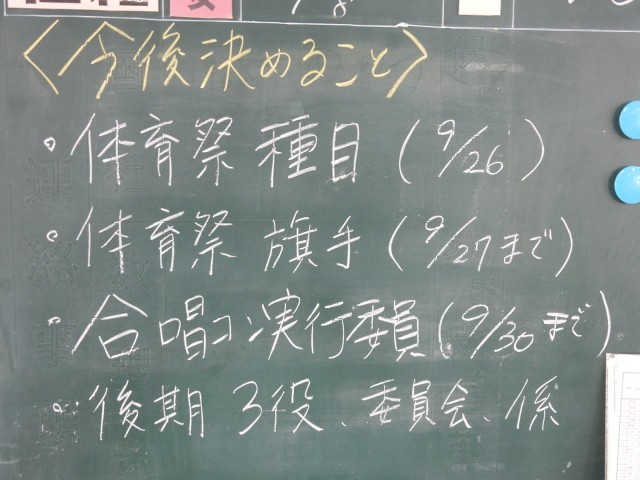 〈今後決めること〉
・体育祭 種目 (9/26)
・体育祭 旗手 (9/27まで)
・合唱コン実行委員(9/30まで)
・後期 3役、委員会、係